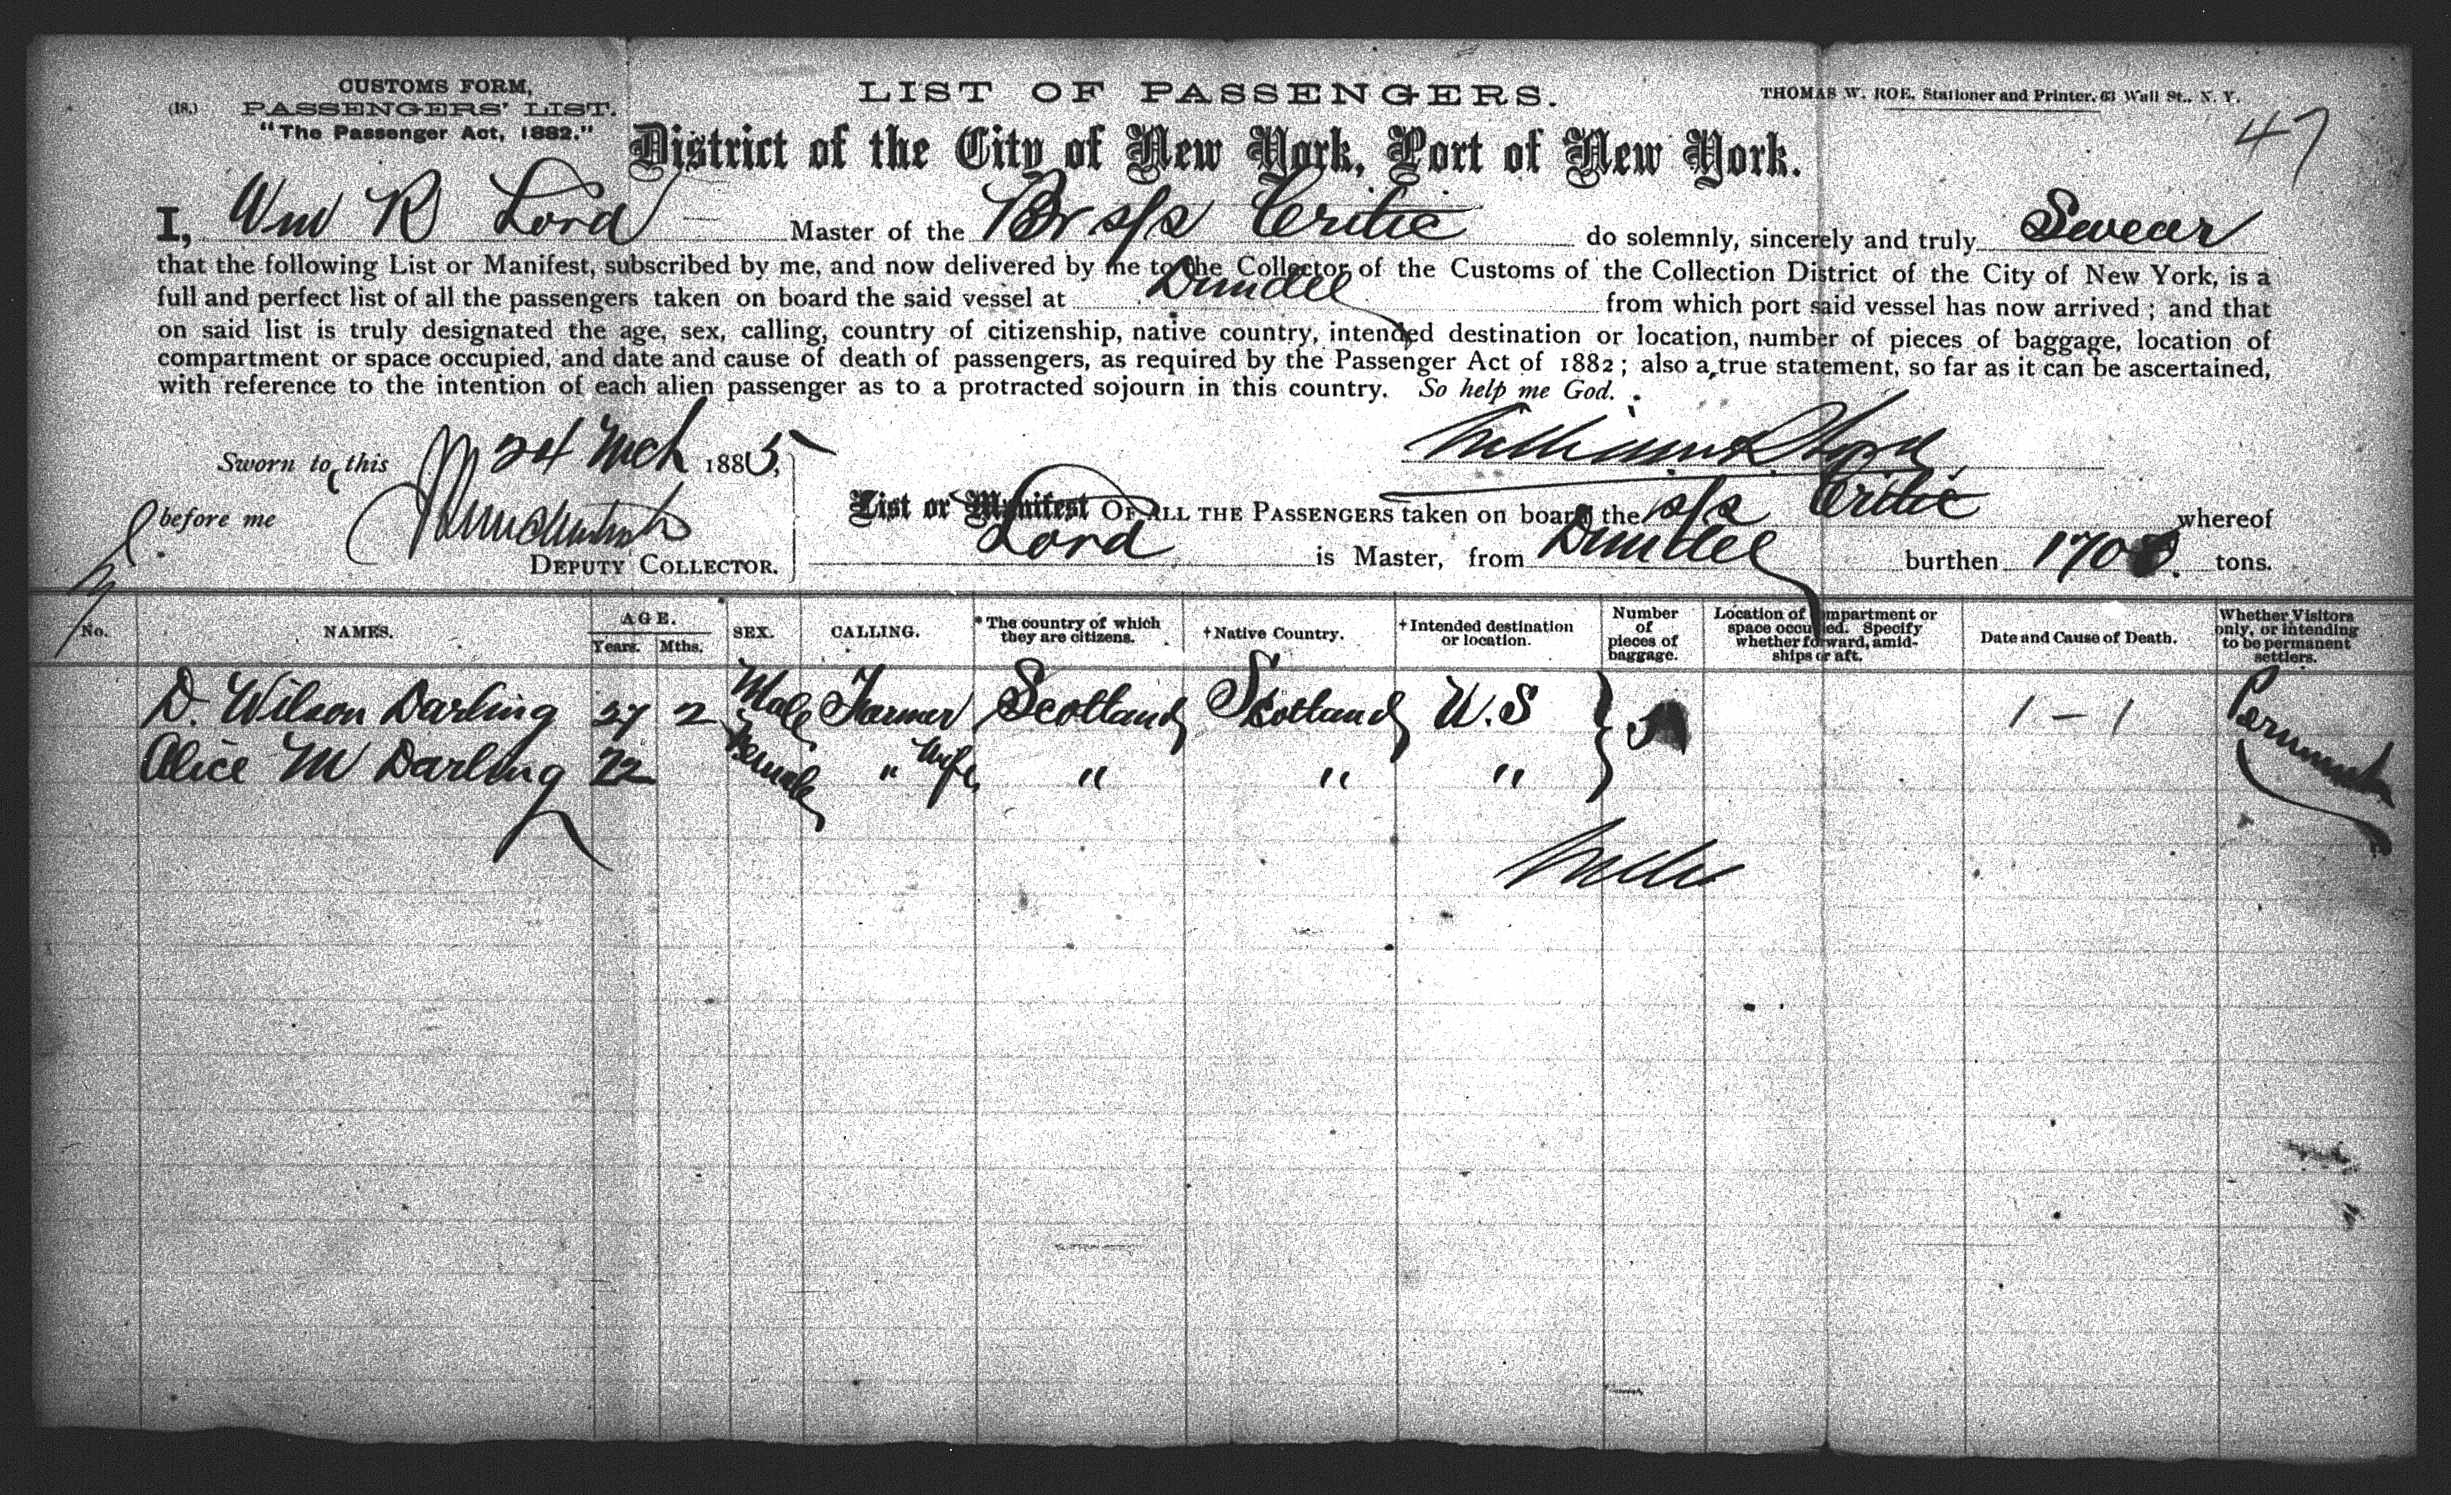 CUSTOMS FORM,
(18.) PASSENGERS' LIST.
"The Passenger Act, 1882."
LIST OF PASSENGERS.
THOMAS W. ROE, Stationer and Printer, 63 Wall St., N. Y.
47
District of the City of New York, Port of New York.
I, Wm R Lord Master of the Br s/s Critic do solemnly, sincerely and truly Swear
that the following List or Manifest, subscribed by me, and now delivered by me to the Collector of the Customs of the Collection District of the City of New York, is a
full and perfect list of all the passengers taken on board the said vessel at Dundee from which port said vessel has now arrived; and that
on said list is truly designated the age, sex, calling, country of citizenship, native country, intended destination or location, number of pieces of baggage, location of
compartment or space occupied, and date and cause of death of passengers, as required by the Passenger Act of 1882; also a true statement, so far as it can be ascertained,
with reference to the intention of each alien passenger as to a protracted sojourn in this country. So help me God.
William R Lord
Sworn to this 24 Mch 1885,
before me
DEPUTY COLLECTOR.
List or Manifest OF ALL THE PASSENGERS taken on board the s/s Critic whereof
Lord is Master, from Dundee burthen 1708 tons.
No. NAMES. AGE. Years. Mths. SEX. CALLING. * The country of which they are citizens. † Native Country. † Intended destination or location. Number of pieces of baggage. Location of compartment or space occupied. Specify whether forward, amidships or aft. Date and Cause of Death. Whether Visitors only, or intending to be permanent settlers.
D. Wilson Darling 27 2 Male Farmer Scotland Scotland U.S 5 1 — 1 Permanent
Alice M Darling 22 Female " Wife " " "